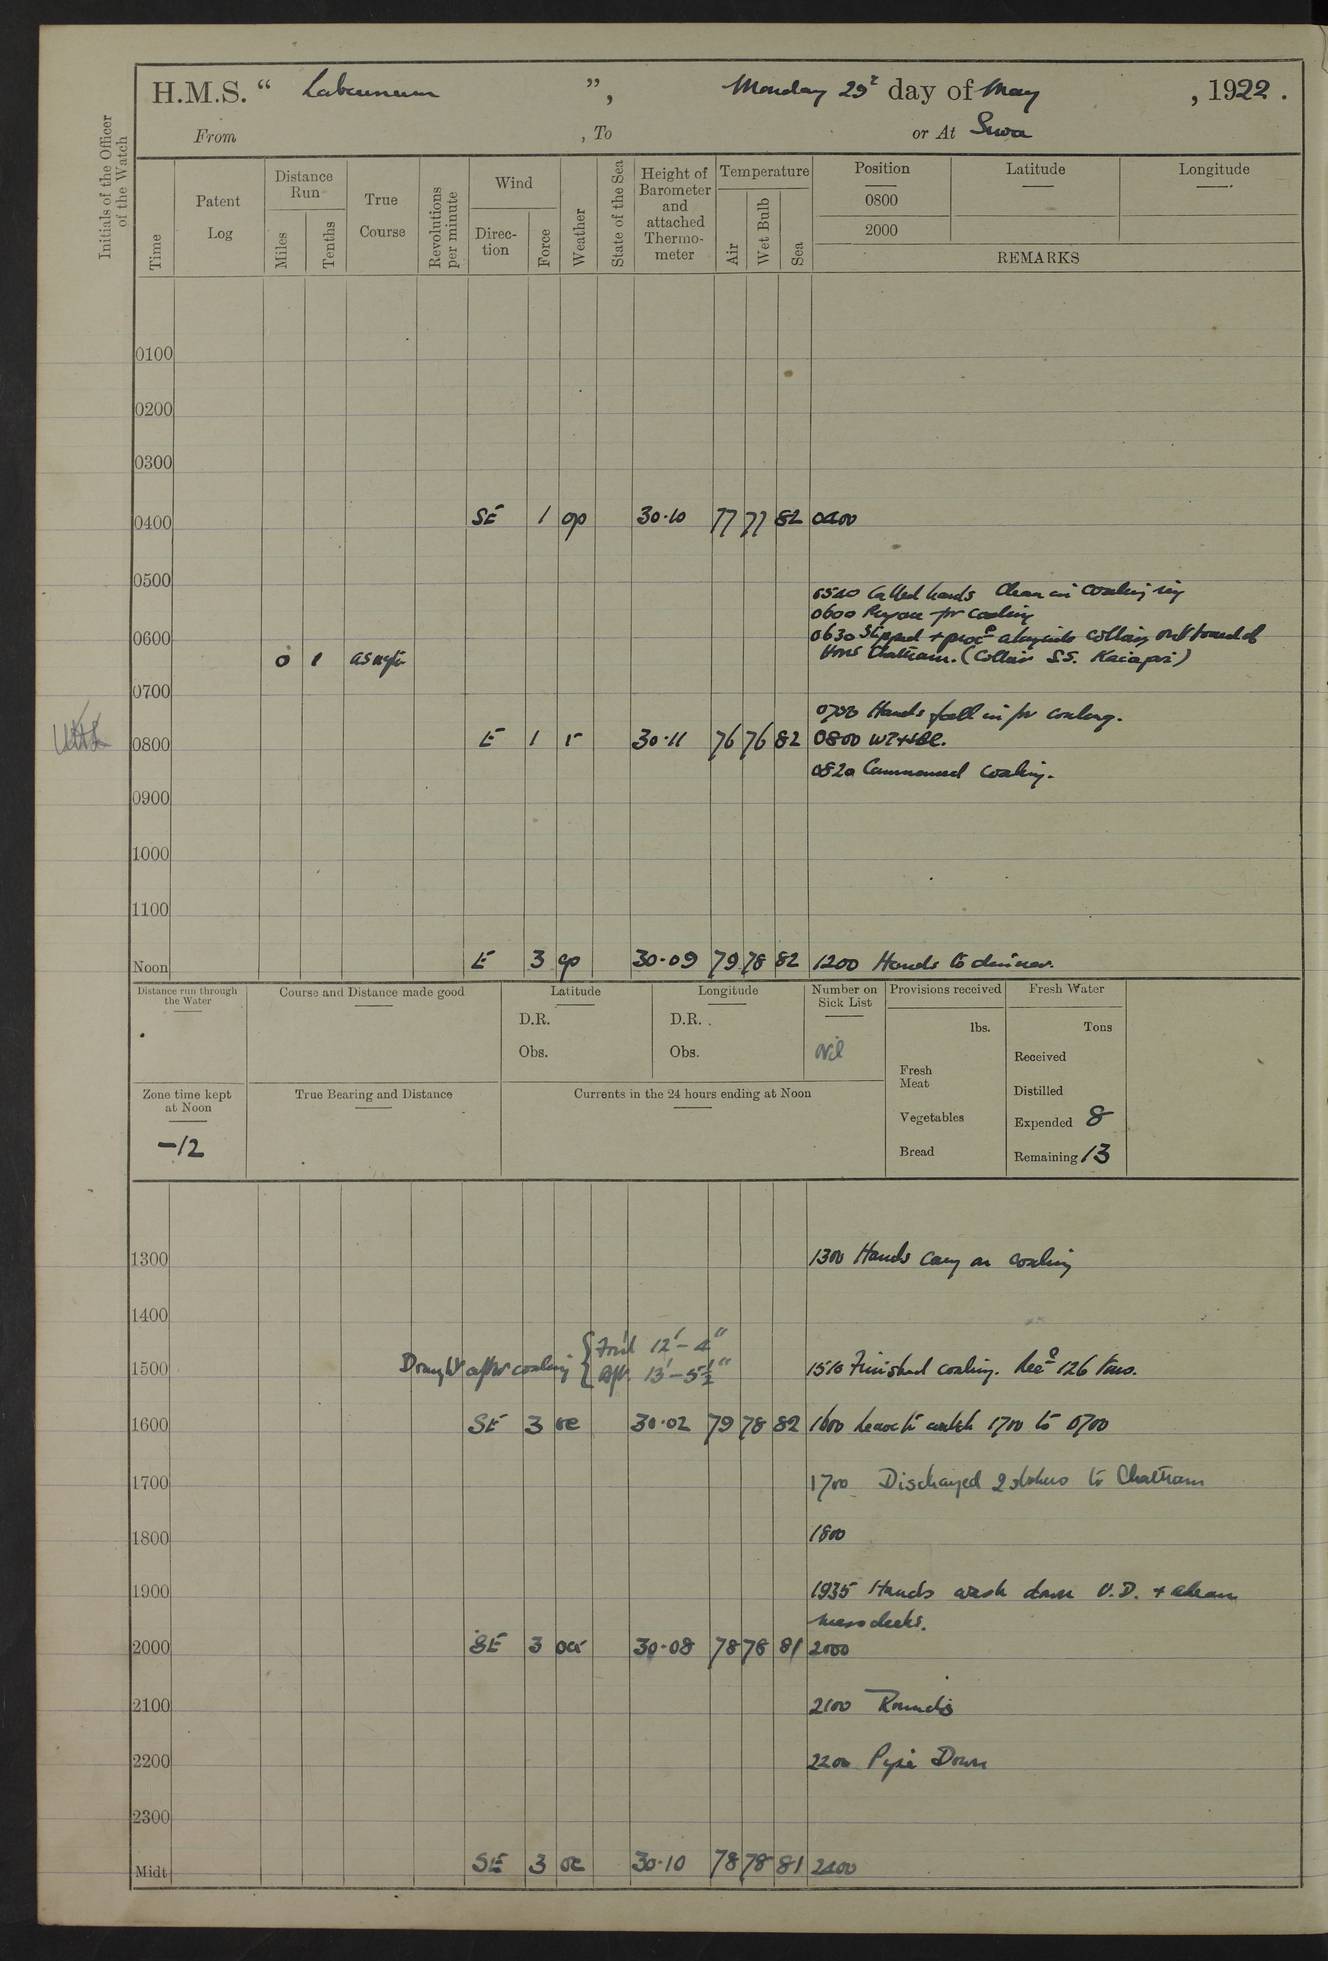 H.M.S. “ Laburnum ”, Monday 29th day of May, 1922.
From , To or At Suva
Initials of the Officer of the Watch
Time
Patent Log
Distance Run
Miles
Tenths
True Course
Revolutions per minute
Wind
Direction
Force
Weather
State of the Sea
Height of Barometer and attached Thermometer
Temperature
Air
Wet Bulb
Sea
Position Latitude Longitude
0800
2000
REMARKS
0100
0200
0300
0400 SE 1 op 30·10 77 77 82 0400
0500
0520 Called hands Clean in coaling rig
0600 Prepare for coaling
0600
0630 Slipped + procd alongside collier outboard of
0 1 as req
HMS Chatham. (Collier S.S. Kaiapoi)
0700
0700 Hands fall in for coaling.
0800 E 1 r 30·11 76 76 82 0800
0820 Commenced coaling.
0900
1000
1100
Noon E 3 op 30·09 79 78 82 1200 Hands to dinner.
Distance run through the Water
Course and Distance made good
Latitude
D.R.
Obs.
Longitude
D.R.
Obs.
Number on Sick List
Nil
Provisions received
lbs.
Fresh Meat
Vegetables
Bread
Fresh Water
Tons
Received
Distilled
Expended 8
Remaining 13
Zone time kept at Noon
−12
True Bearing and Distance
Currents in the 24 hours ending at Noon
1300 1300 Hands carry on coaling
1400
Draught after coaling { For'd 12'–4"
Aft. 13'–5½"
1500 1510 Finished coaling. Recd 126 tons.
1600 SE 3 oc 30·02 79 78 82 1600 Leave to watch 1700 to 0700
1700 1700 Discharged 2 stokers to Chatham
1800 1800
1900 1935 Hands wash down U.D. + clean
messdecks.
2000 SE 3 ocr 30·08 78 78 81 2000
2100 2100 Rounds
2200 2200 Pipe Down
2300
Midt SE 3 oc 30·10 78 78 81 2400